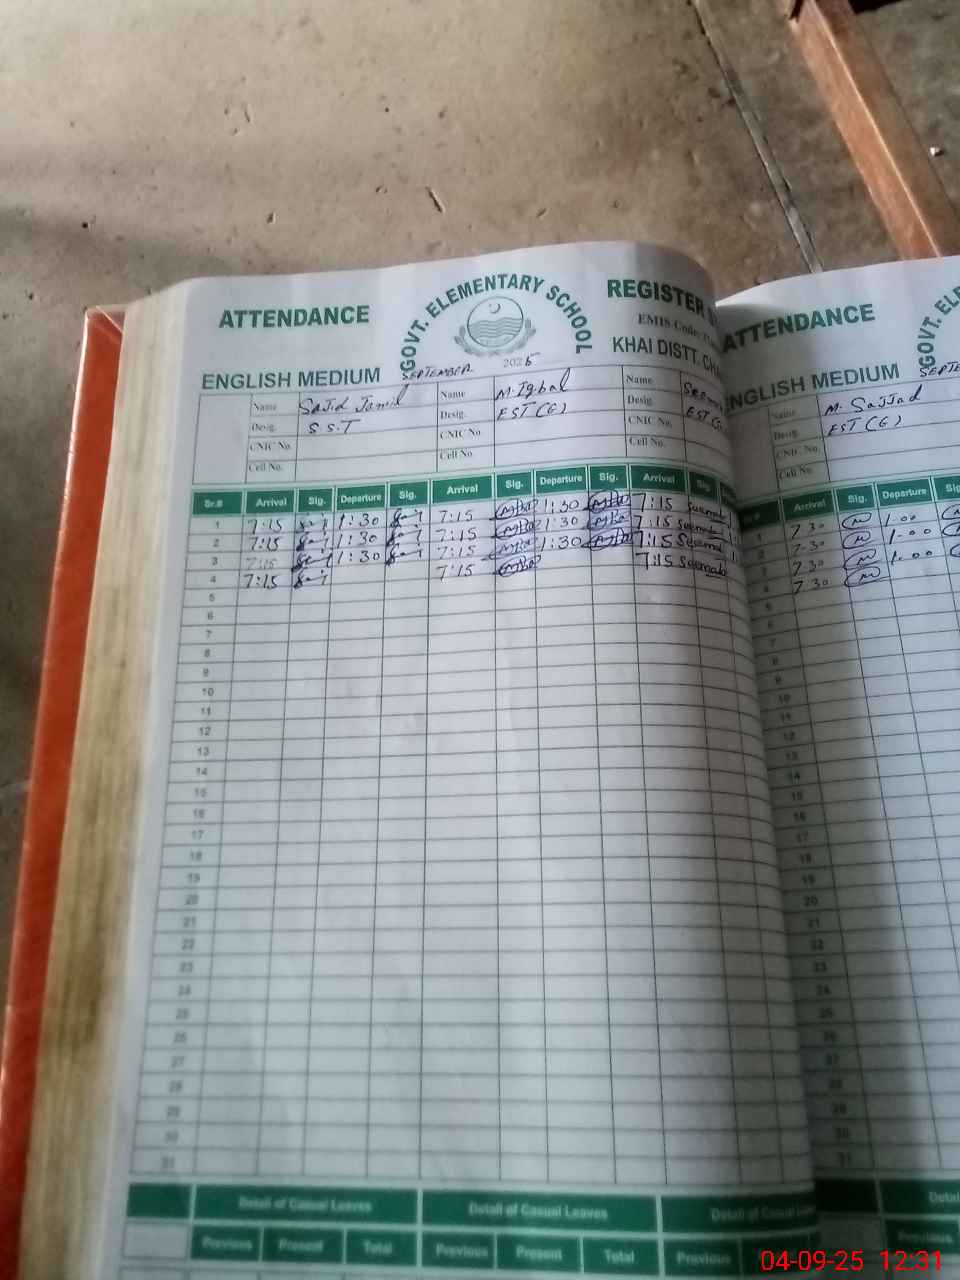 ATTENDANCE
GOVT. ELEMENTARY SCHOOL
REGISTER
EMIS Code:
KHAI DISTT.
ENGLISH MEDIUM
SEPTEMBER 2025
Name Sajid Jamil Name M. Iqbal Name
Desig. S.S.T Desig. EST (G) Desig. EST
CNIC No. CNIC No. CNIC No.
Cell No. Cell No. Cell No.
Sr.# Arrival Sig. Departure Sig. Arrival Sig. Departure Sig. Arrival Sig.
1 7:15 1:30 7:15 1:30 7:15
2 7:15 1:30 7:15 1:30 7:15
3 7:15 1:30 7:15 1:30 7:15
4 7:15 7:15 7:15
5
6
7
8
9
10
11
12
13
14
15
16
17
18
19
20
21
22
23
24
25
26
27
28
29
30
31
Detail of Casual Leaves Detail of Casual Leaves Detail of Casual Leaves
Previous Present Total Previous Present Total Previous
ATTENDANCE
GOVT. EL
ENGLISH MEDIUM
SEPTE
Name M. Sajjad
Desig. EST (G)
CNIC No.
Cell No.
Arrival Sig. Departure
1 7.30 1.00
2 7.30 1.00
3 7.30 1.00
4 7.30
5
6
7
8
9
10
11
12
13
14
15
16
17
18
19
20
21
22
23
24
25
26
27
28
29
30
31
Detail
Previous
04-09-25 12:31